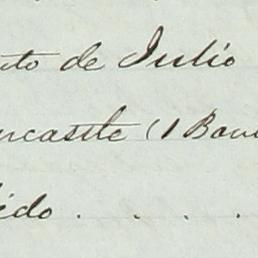 uto de Julio
ncastle (1 Bau
ido . . . .